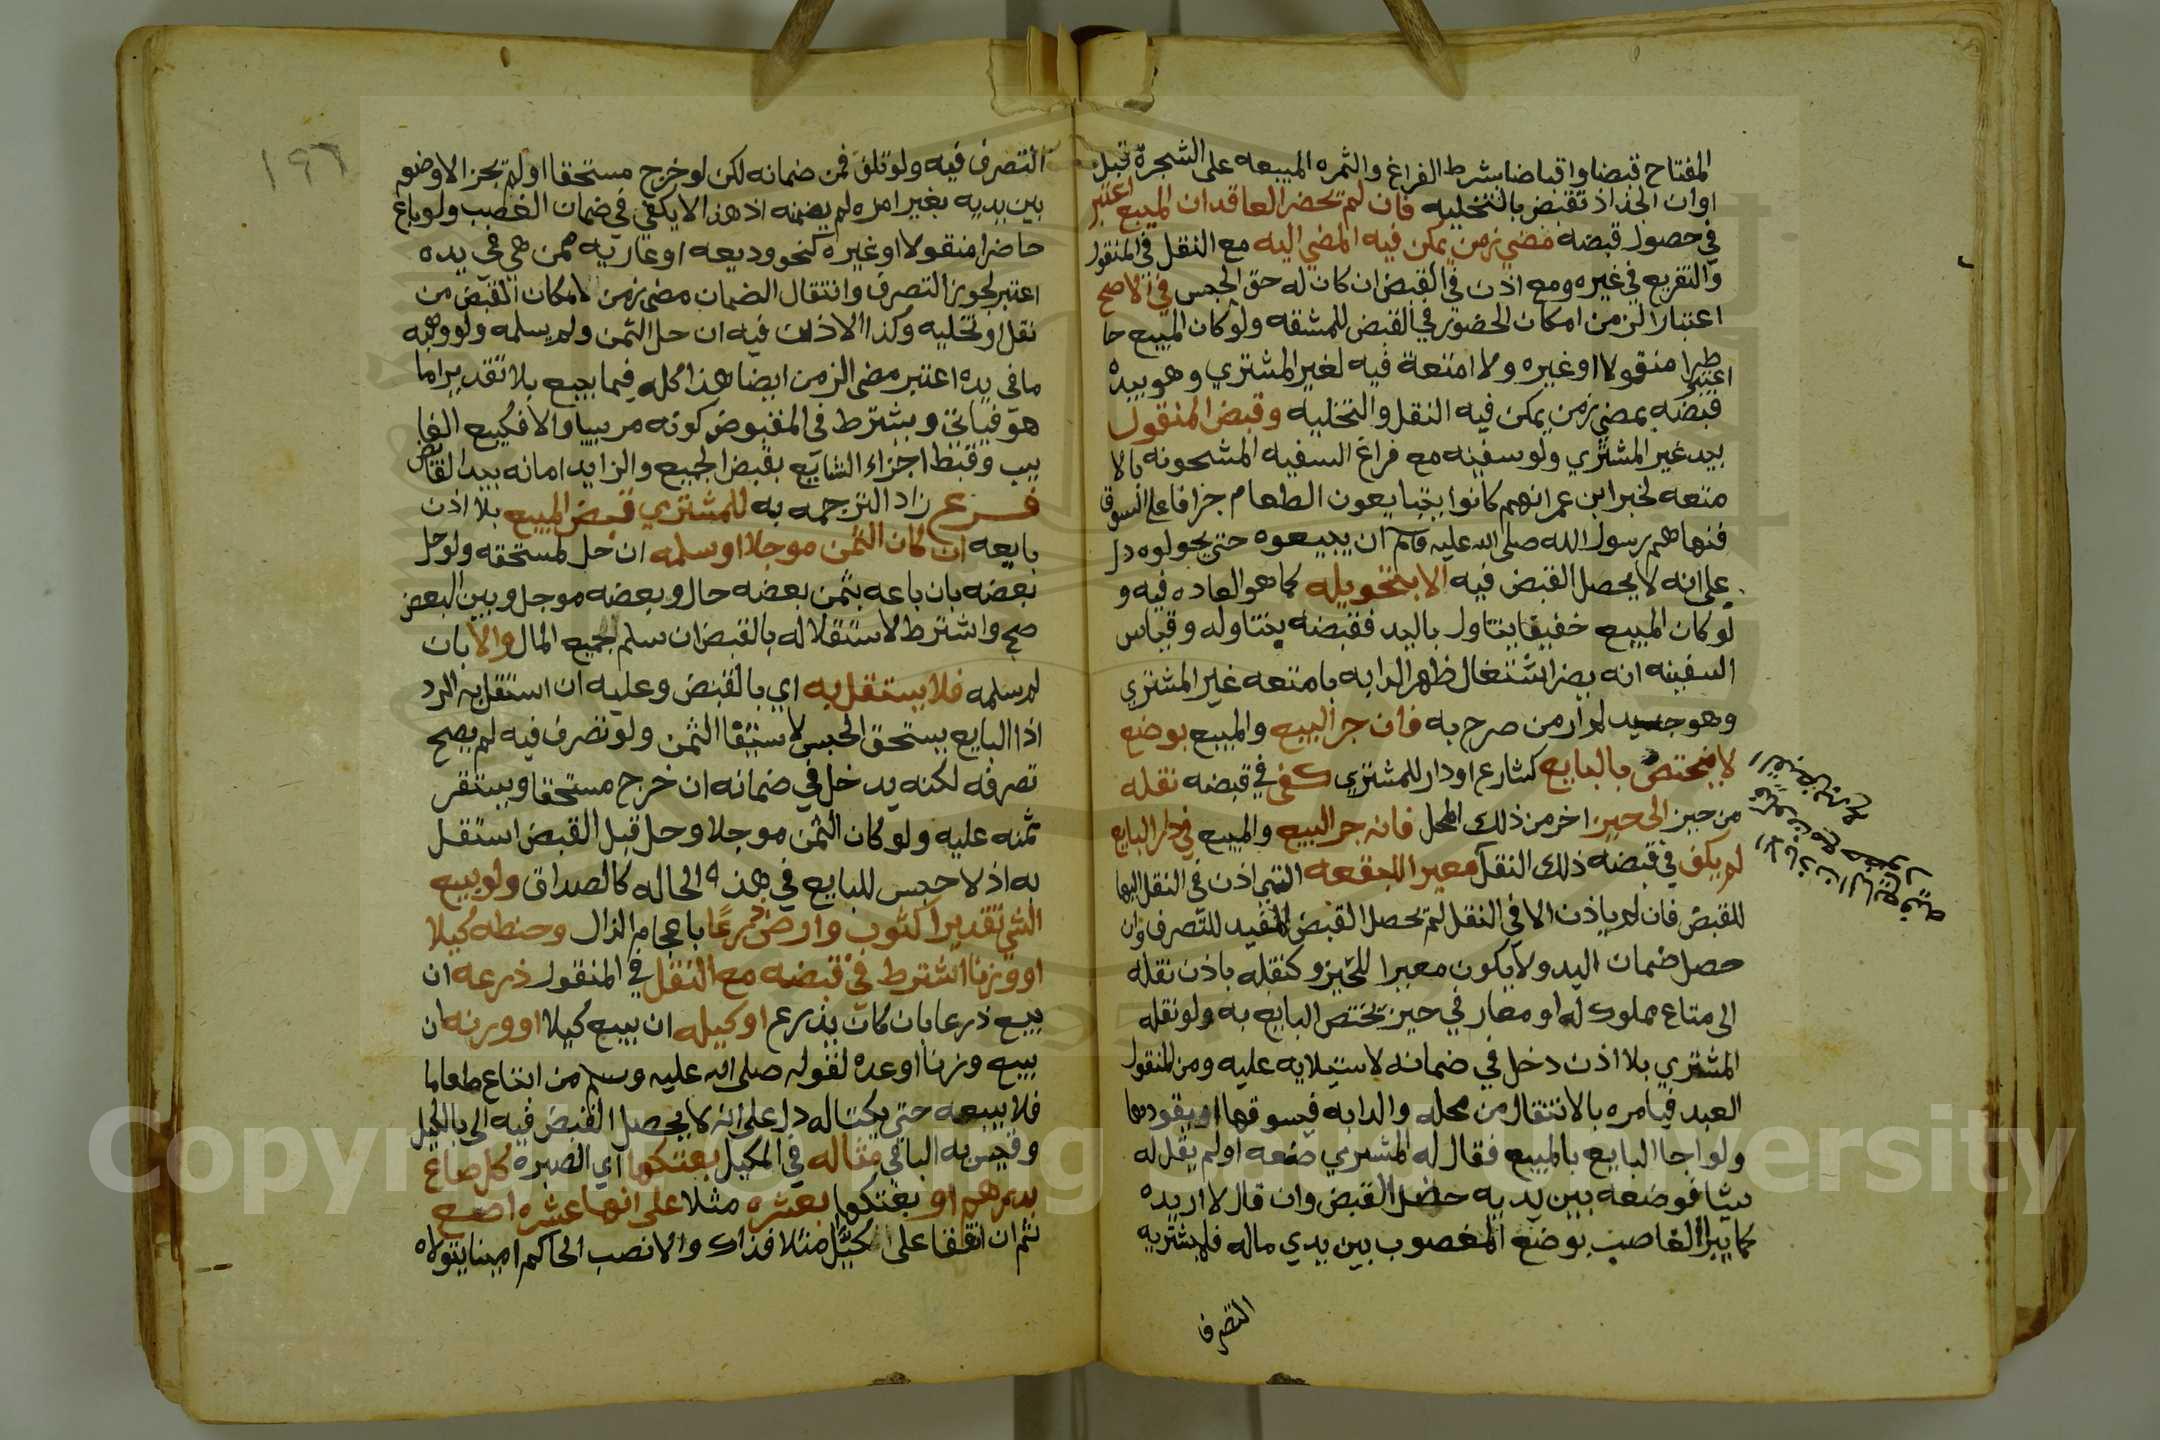 المفتاح قبضا واقباضا بشرط الفراغ والثمره المبيعه على الشجرة قبل
اوان الجذاذ تقبض بالتخليه فان لم يحضر العاقدان المبيع اعتبر
في حصول قبضه مضي زمن يمكن فيه المضي اليه مع النقل في المنقول
والتفريغ في غيره ومع اذن في القبض ان كان له حق الحبس في الاصح
اعتبار الزمن امكان الحضور في القبض للمشقه ولو كان المبيع حا
ضرا منقولا او غيره ولا امتعة فيه لغير المشتري وهو بيده اعتبر
قبضه بمضي زمن يمكن فيه النقل والتخليه وقبض المنقول
بيد غير المشتري ولو سفينه مع فراغ السفينه المشحونه بالا
متعه لخبر ابن عمر انهم كانوا يتبايعون الطعام جزافا على السوق
فنهاهم رسول الله صلى الله عليه وسلم ان يبيعوه حتى يحولوه دل
على انه لا يحصل القبض فيه الا بتحويله كما هو العاده فيه و
لو كان المبيع خفيفا يتناول باليد فقبضه يتناوله وقياس
السفينه انه يضر اشتغال ظهر الدابه بامتعه غير المشتري
وهو جسيد لم ار من صرح به فان جرى البيع والمبيع بوضع
لا يختص بالبايع كشارع او دار للمشتري كفى في قبضه نقله
من حيز الى حيز اخر من ذلك المحل فانه جرى البيع والمبيع في دار البايع
لم يكف في قبضه ذلك النقل معيرا للبقعه التي اذن في النقل اليها
للقبض فان لم ياذن الا في النقل لم يحصل القبض المفيد للتصرف وان
حصل ضمان اليد ولا يكون معيرا للحيز وكنقله باذن نقله
الى متاع مملوك له او معار في حيز يختص البايع به ولو نقله
المشتري بلا اذن دخل في ضمانه لاستيلايه عليه ومن المنقول
العبد فيامره بالانتقال من محله والدابه فيسوقها او يقودها
ولو اجا البايع بالمبيع فقال له المشتري ضعه او لم يقل له
شيا فوضعه بين يديه حصل القبض وان قال لا اريده
كما يبرا الغاصب بوضع المغصوب بين يدي ماله فللمشتريه
التصرف
التصرف فيه ولو تلف فمن ضمانه لكن لو خرج مستحقا ولم يجز الا وضعه
بين يديه بغير امره لم يضمنه اذ هذا لا يكفي في ضمان الغصب ولو باع
حاضرا منقولا او غيره كنحو وديعه او عاريه ممن هي في يده
اعتبر لجوىز التصرف وانتقال الضمان مضي زمن لامكان القبض من
نقل او تخليه وكذا الاذن فيه ان حل الثمن ولم يسلمه ولو وهبه
ما في يده اعتبر مضى الزمن ايضا هذا كله فيما يبيع بلا تقدير اما
هو فياتي ويشترط في المقبوض كونه مربيا والا فكبيع الغا
يب وقبض اجزاء الشايع بقبض الجميع والزايد امانه بيد القابض
فرع زاد الترجمه به للمشتري قبض المبيع بلا اذن
بايعه ان كان الثمن موجلا او سلمه ان حل لمستحقه ولو حل
بعضه بان باعه بثمن بعضه حال وبعضه موجل وبين البعض
صح واشترط لاستقلاله بالقبض ان سلم جميع المال والا بان
لم يسلمه فلا يستقل به اي بالقبض وعليه ان استقل به الرد
اذ البايع يستحق الحبس لاستيفا الثمن ولو تصرف فيه لم يصح
تصرفه لكنه يدخل في ضمانه ان خرج مستحقا ويستقر
ثمنه عليه ولو كان الثمن موجلا وحل قبل القبض استقل
به اذ لا حبس للبايع في هذه الحاله كالصداق ولو بيع
الشي تقديرا كثوب وارض ذرعا باعجام الذال وحنطه كيلا
او وزنا اشترط في قبضه مع النقل في المنقول ذرعه ان
بيع ذرعا بان كان يذرع او كيله ان بيع كيلا او وزنه ان
بيع وزنا او عده لقوله صلى الله عليه وسلم من ابتاع طعاما
فلا يبيعه حتى يكتاله دل على انه لا يحصل القبض فيه الى بالكيل
وقيس به الباقي مثاله في المكيل بعتكها اي الصبره كل صاع
بدرهم او بعتكها بعشره مثلا على انها عشره اصع
ثم ان اتفقا على كيال مثلا فذاك والا نصب الحاكم امينا يتولاه
١٩٦
Copyright © King Saud University